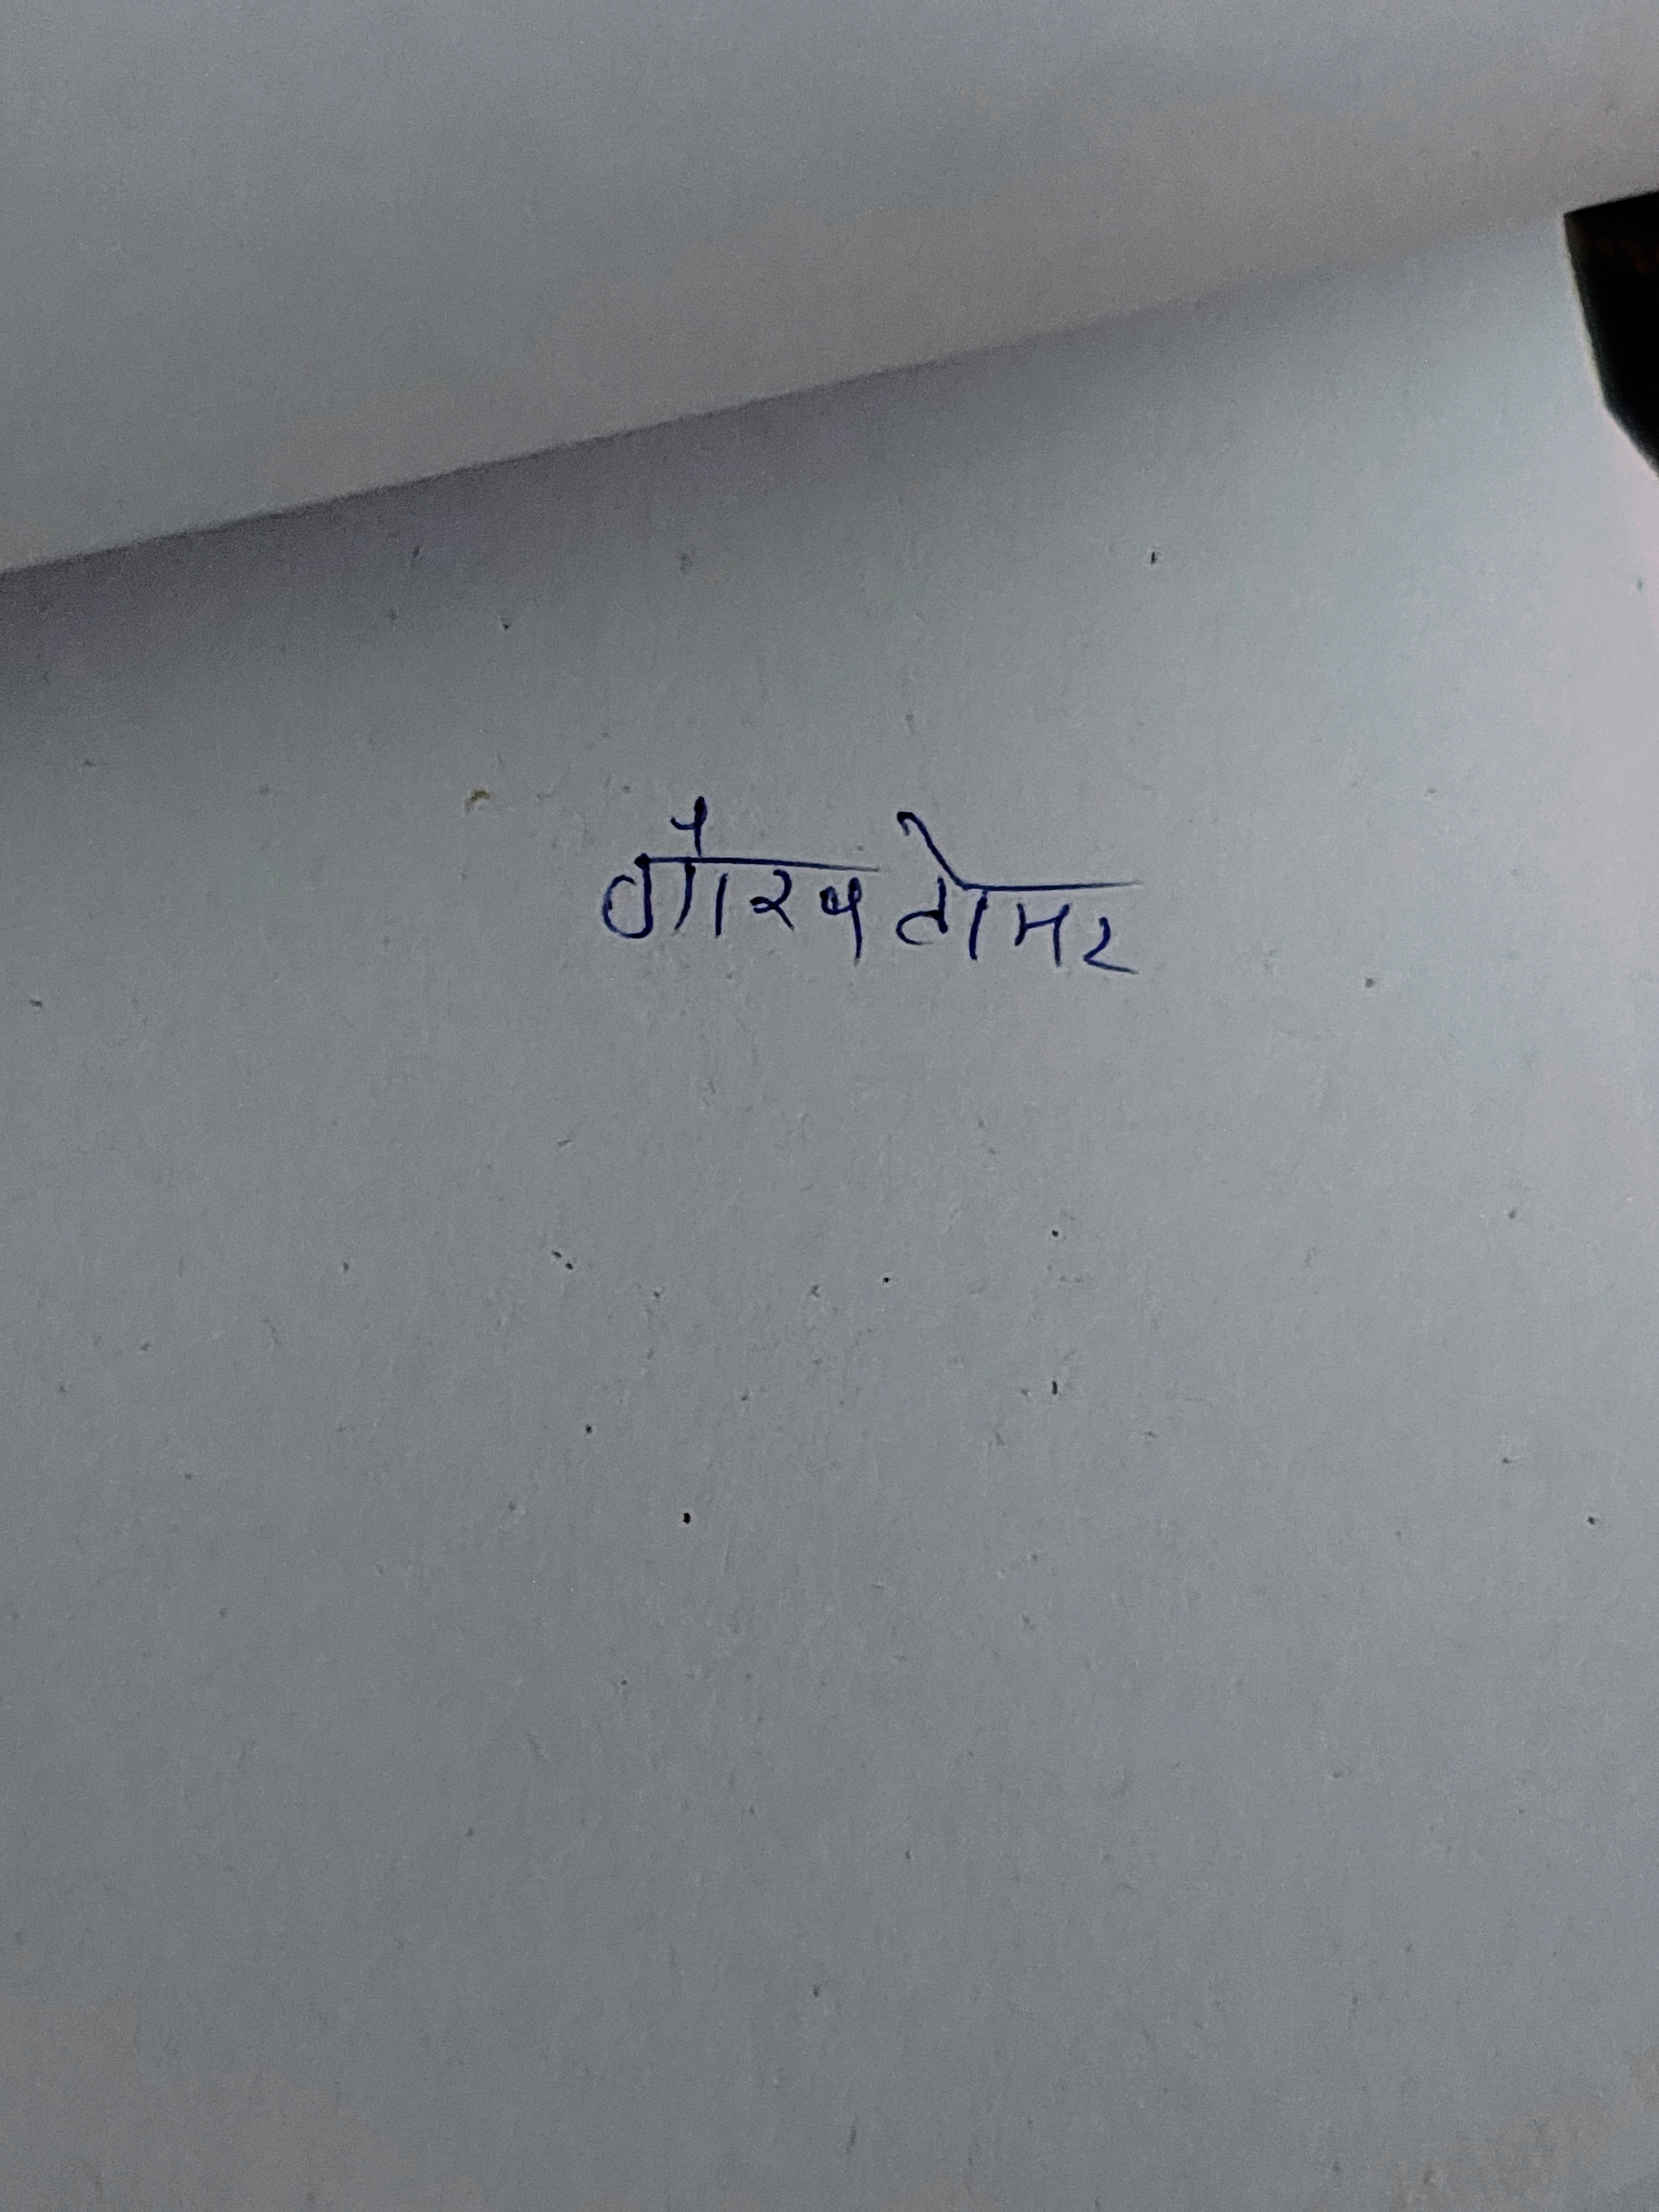 गौरव तोमर